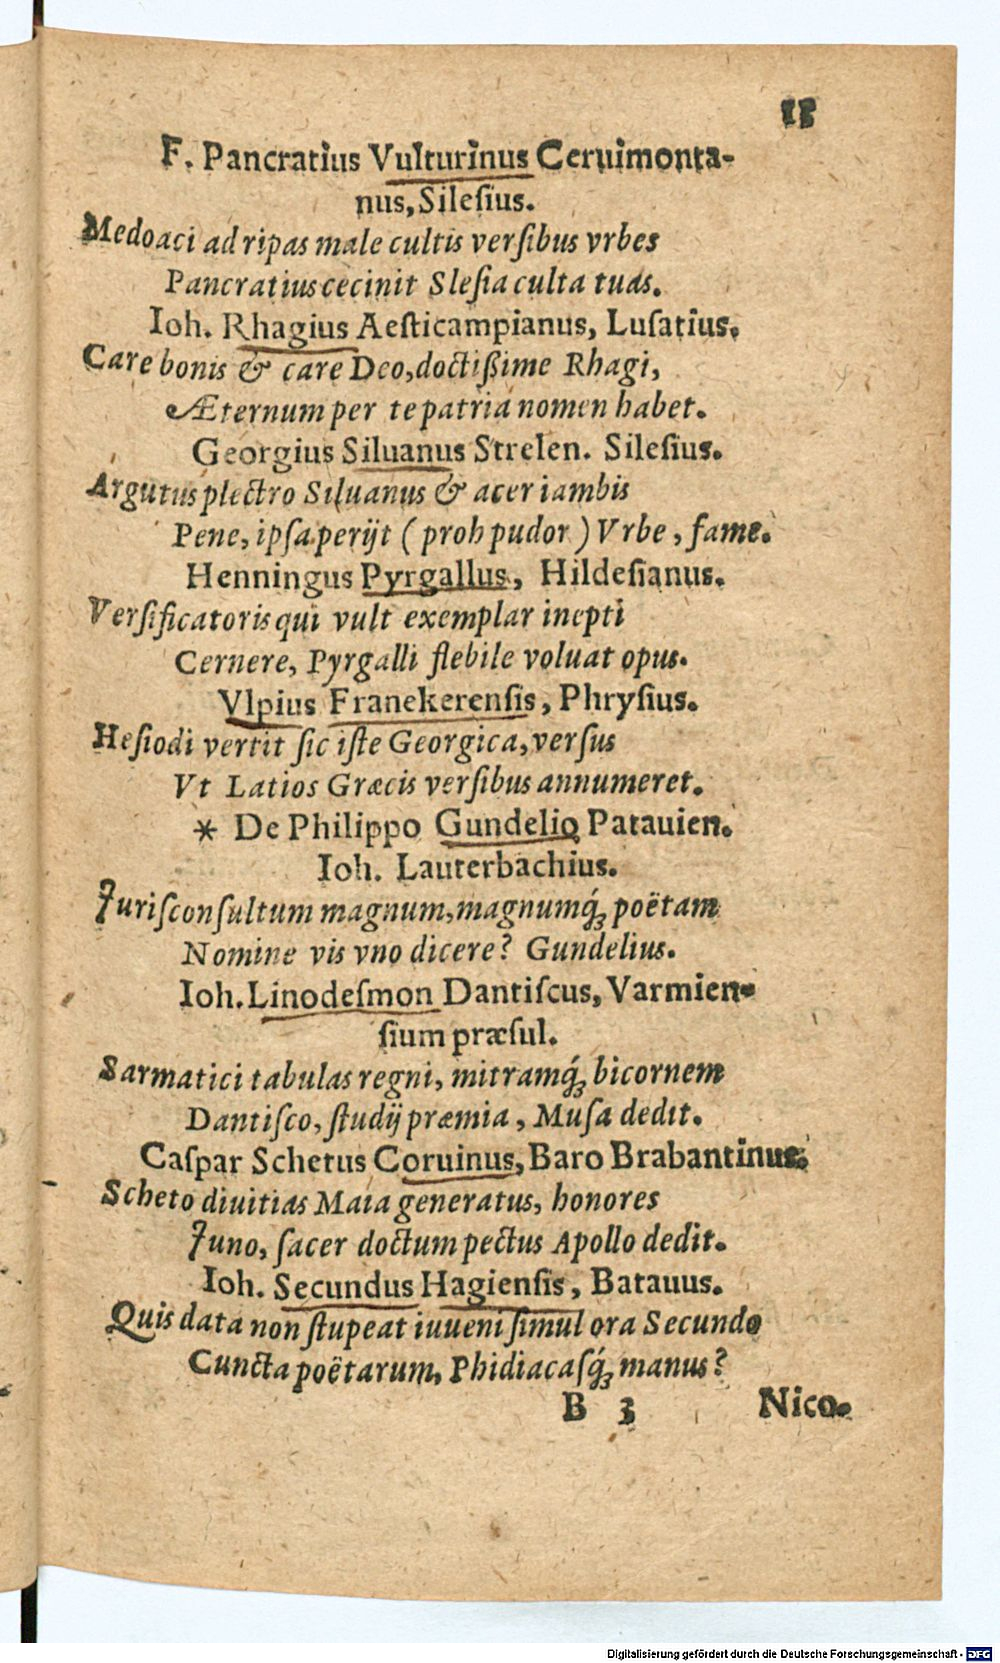 15
F. Pancratius Vulturinus Ceruimonta-
nus, Silesius.
Medoaci ad ripas male cultis versibus vrbes
Pancratius cecinit Slesia culta tuas.
Ioh. Rhagius Aesticampianus, Lusatius.
Care bonis & care Deo, doctißime Rhagi,
Æternum per te patria nomen habet.
Georgius Siluanus Strelen. Silesius.
Argutus plectro Siluanus & acer iambis
Pene, ipsa perijt (proh pudor) Vrbe, fame.
Henningus Pyrgallus, Hildesianus.
Versificatoris qui vult exemplar inepti
Cernere, Pyrgalli flebile voluat opus.
Vlpius Franekerensis, Phrysius.
Hesiodi vertit sic iste Georgica, versus
Vt Latios Græcis versibus annumeret.
* De Philippo Gundelio Patauien.
Ioh. Lauterbachius.
Jurisconsultum magnum, magnumq́; poëtam
Nomine vis vno dicere? Gundelius.
Ioh. Linodesmon Dantiscus, Varmien-
sium præsul.
Sarmatici tabulas regni, mitramq́; bicornem
Dantisco, studij præmia, Musa dedit.
Caspar Schetus Coruinus, Baro Brabantinus.
Scheto diuitias Maia generatus, honores
Juno, sacer doctum pectus Apollo dedit.
Ioh. Secundus Hagiensis, Batauus.
Quis data non stupeat iuueni simul ora Secundo
Cuncta poëtarum, Phidiacasq́; manus?
B 3 Nico.
Digitalisierung gefördert durch die Deutsche Forschungsgemeinschaft - DFG